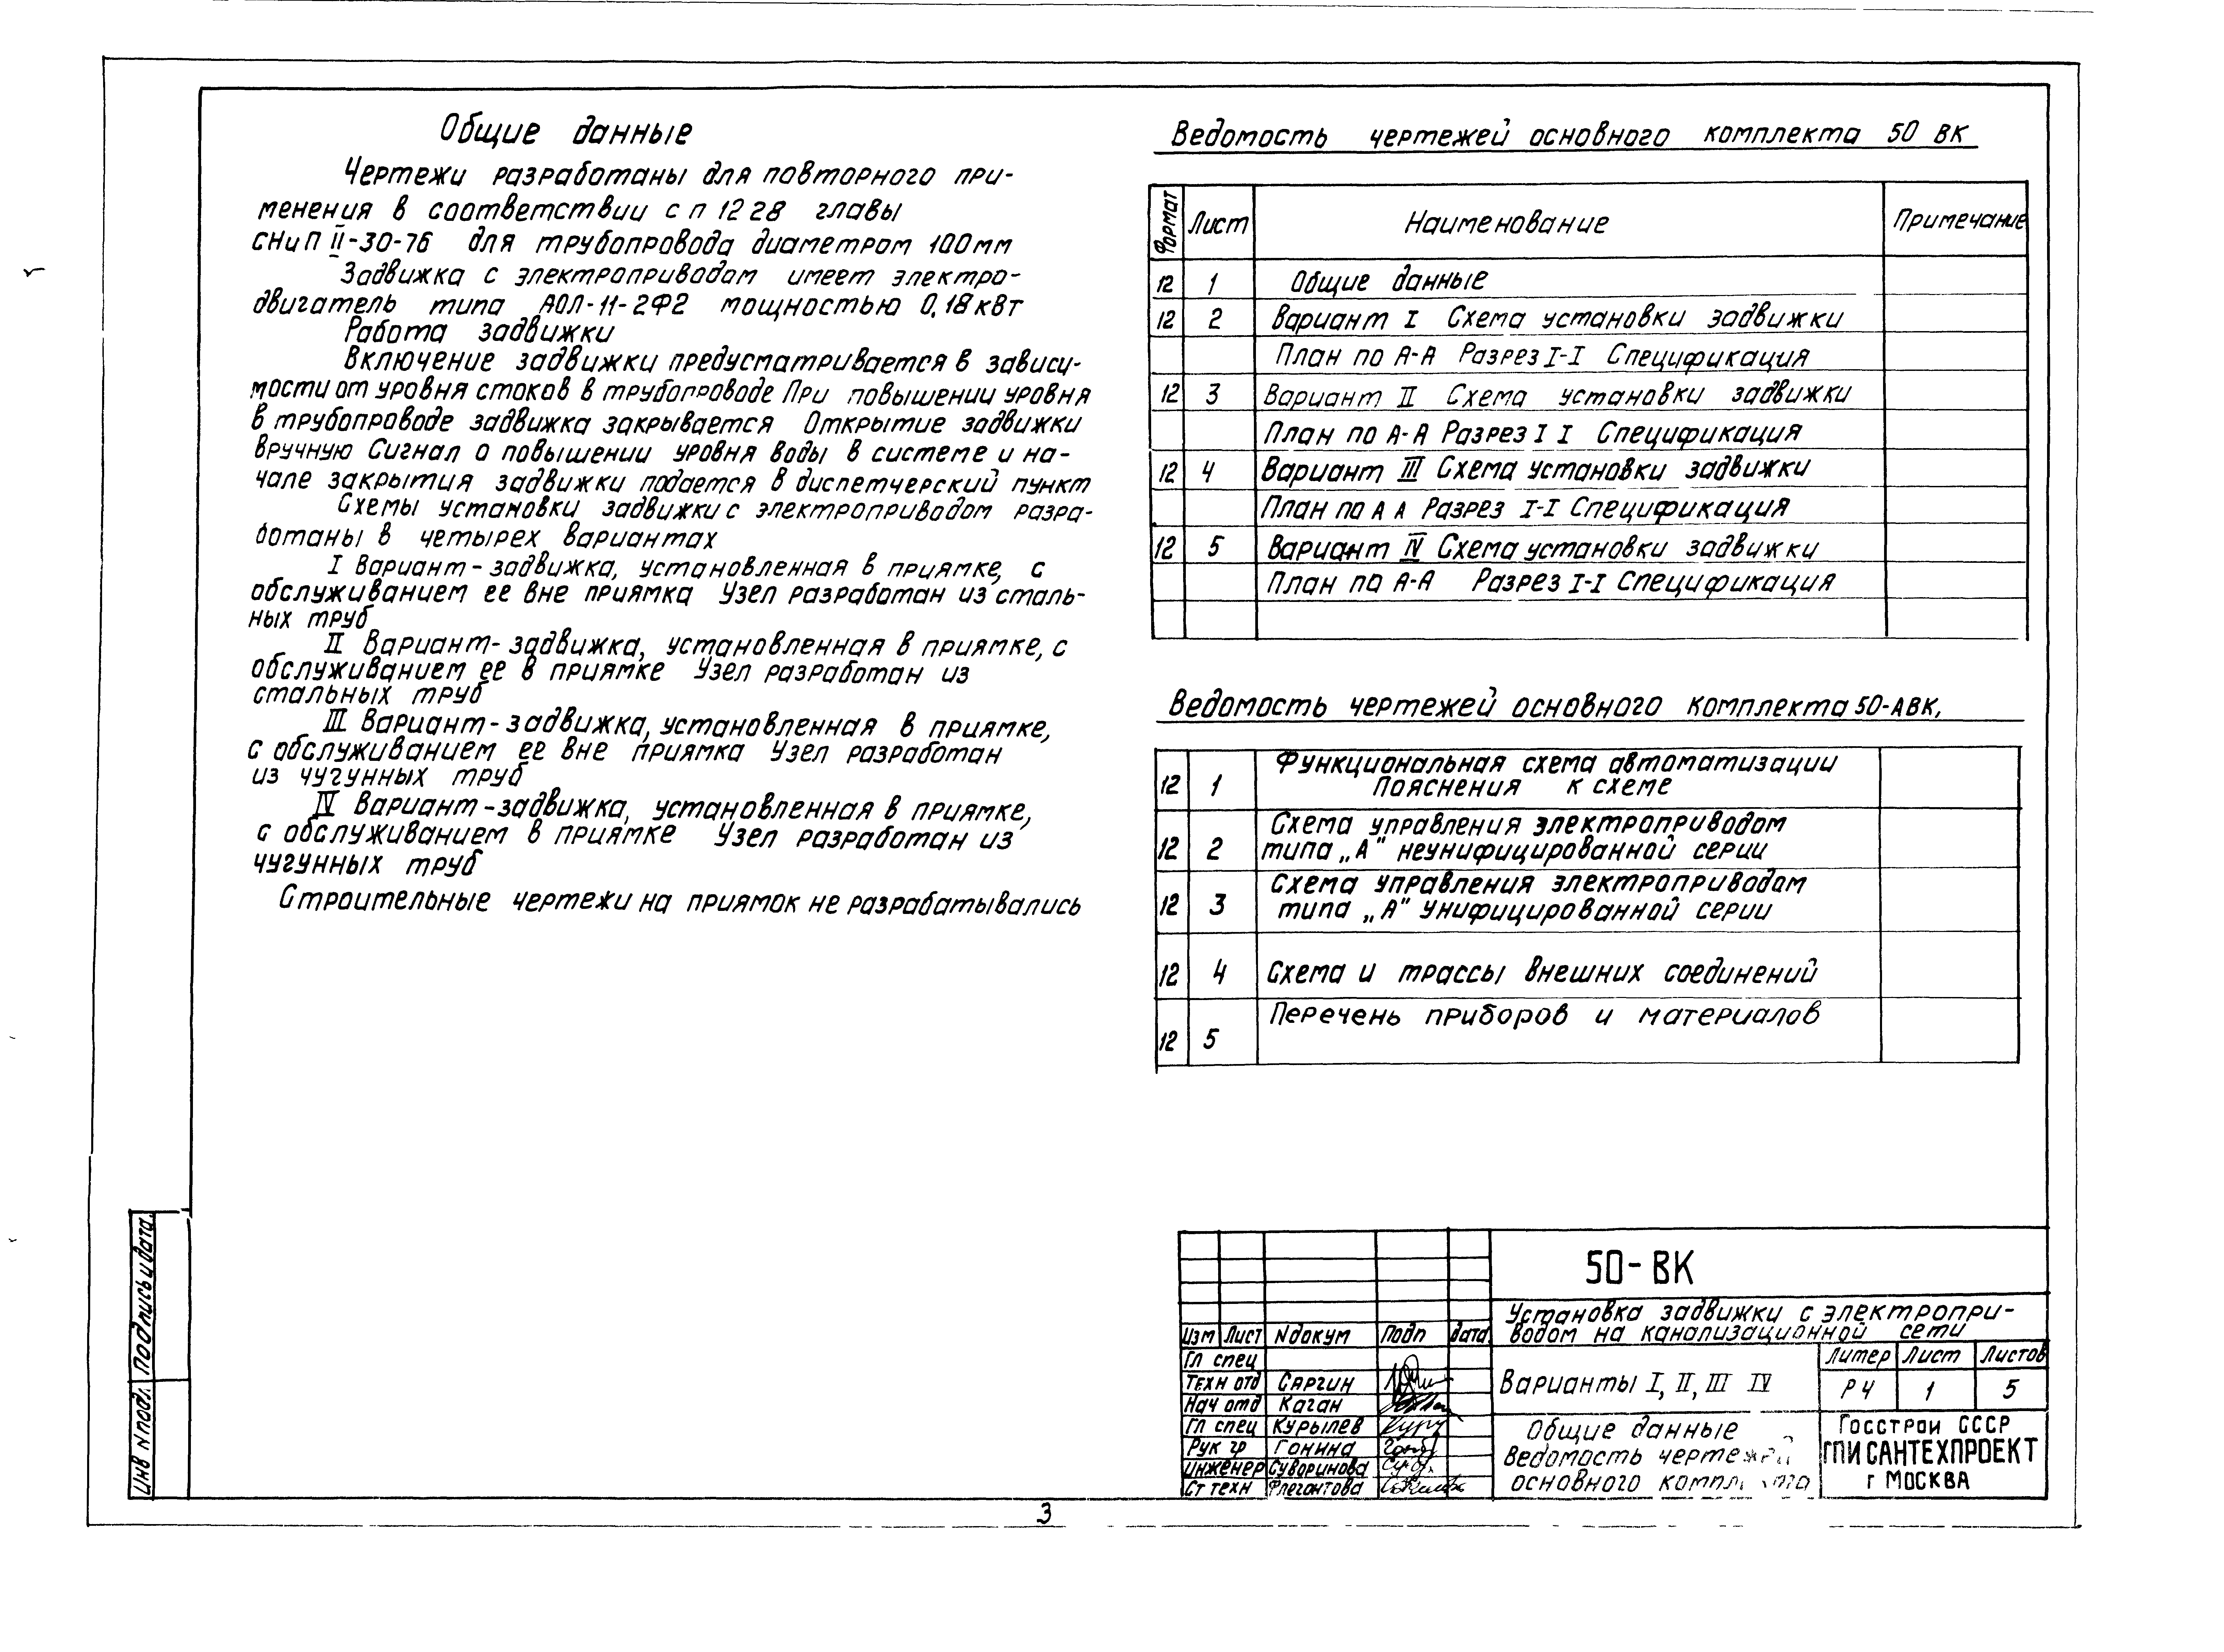 Общие данные
Чертежи разработаны для повторного при-
менения в соответствии с п 12 28 главы
СНиП II-30-76 для трубопровода диаметром 100мм
Задвижка с электроприводом имеет электро-
двигатель типа АОЛ-11-2Ф2 мощностью 0,18 кВт
Работа задвижки
Включение задвижки предусматривается в зависи-
мости от уровня стоков в трубопроводе При повышении уровня
в трубопроводе задвижка закрывается Открытие задвижки
вручную Сигнал о повышении уровня воды в системе и на-
чале закрытия задвижки подается в диспетчерский пункт
Схемы установки задвижки с электроприводом разра-
ботаны в четырех вариантах
I Вариант - задвижка, установленная в приямке, с
обслуживанием ее вне приямка Узел разработан из сталь-
ных труб
II Вариант - задвижка, установленная в приямке, с
обслуживанием ее в приямке Узел разработан из
стальных труб
III Вариант - задвижка, установленная в приямке,
с обслуживанием ее вне приямка Узел разработан
из чугунных труб
IV Вариант - задвижка, установленная в приямке,
с обслуживанием в приямке Узел разработан из
чугунных труб
Строительные чертежи на приямок не разрабатывались
Ведомость чертежей основного комплекта 50 ВК
Формат Лист Наименование Примечание
12 1 Общие данные
12 2 Вариант I Схема установки задвижки
План по А-А Разрез I-I Спецификация
12 3 Вариант II Схема установки задвижки
План по А-А Разрез I I Спецификация
12 4 Вариант III Схема установки задвижки
План по А А Разрез I-I Спецификация
12 5 Вариант IV Схема установки задвижки
План по А-А Разрез I-I Спецификация
Ведомость чертежей основного комплекта 50-АВК,
12 1 Функциональная схема автоматизации
Пояснения к схеме
12 2 Схема управления электроприводом
типа „А" неунифицированной серии
12 3 Схема управления электроприводом
типа „А" унифицированной серии
12 4 Схема и трассы внешних соединений
12 5 Перечень приборов и материалов
50-ВК
Установка задвижки с электропри-
водом на канализационной сети
Изм Лист N докум Подп дата
Гл спец
Техн отд Саргин
Нач отд Каган
Гл спец Курылев
Рук гр Гонина
Инженер Суворинова
Ст техн Флегонтова
Варианты I, II, III IV
Литер Лист Листов
РЧ 1 5
Общие данные
Ведомость чертежей
основного комплекта
Госстрой СССР
ГПИ САНТЕХПРОЕКТ
г Москва
Инв N подл. Подпись и дата.
3